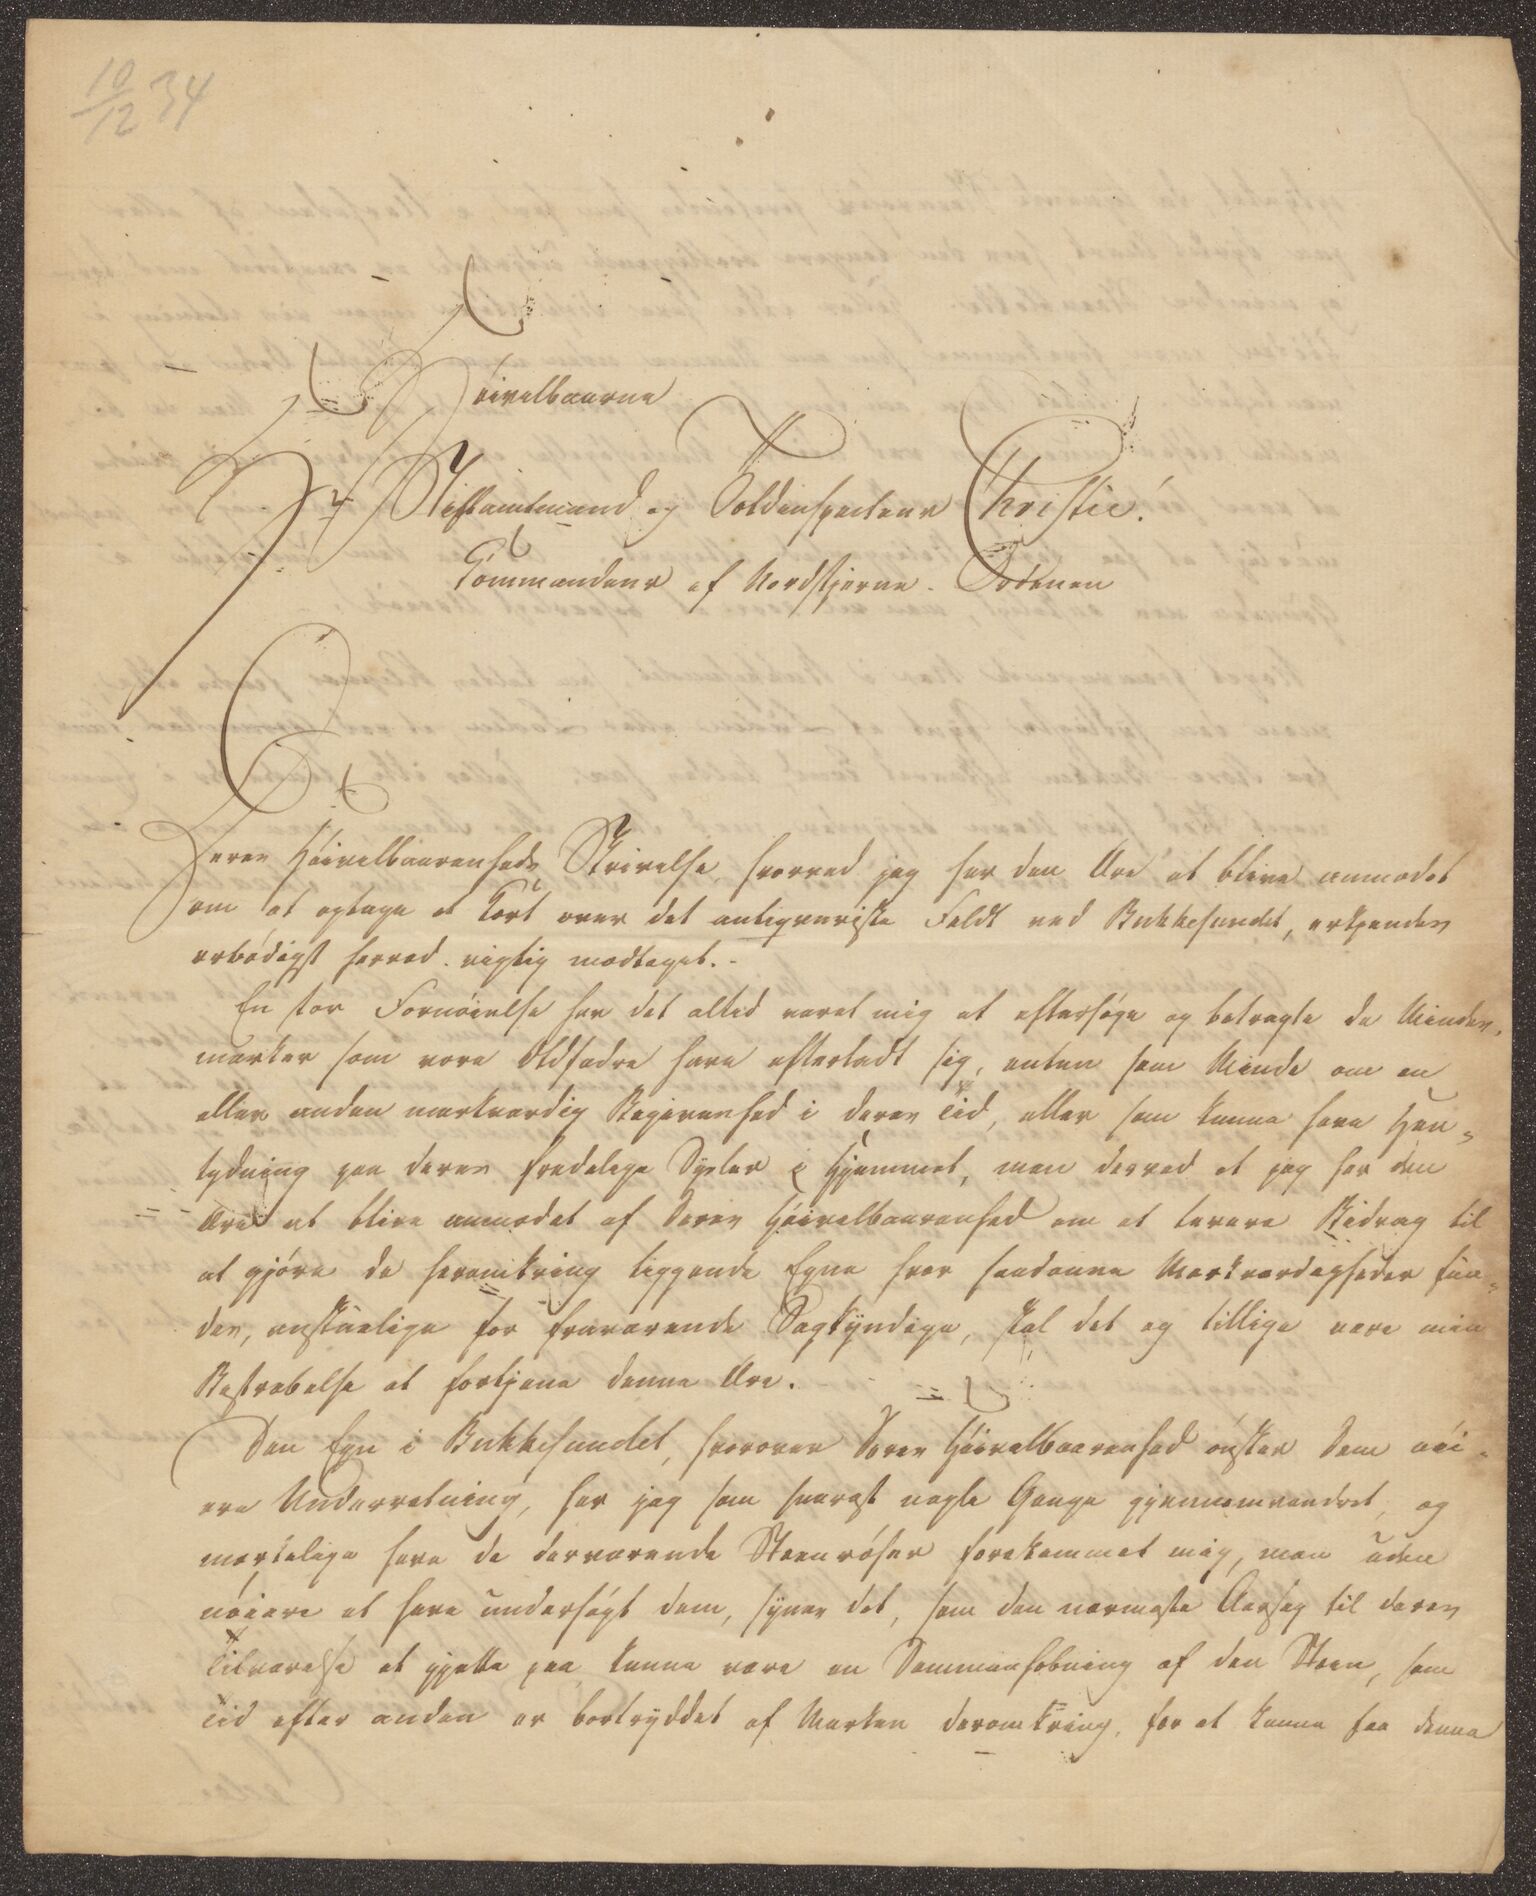 10/12 34
Höivelbaarne
Hr Stiftamtmand og Toldinspecteur Christie!
Commandeur af Nordstjerne-Ordenen
Deres Höivelbaarenheds Skrivelse, hvorved jeg har den Ære at blive anmodet
om at optage et Kort over det antiqvariske Feldt ved Bukkesundet, erkjendes
erbödigst herved rigtig modtaget. -
En stor Fornöielse har det altid været mig at eftersöge og betragte de Mindes-
mærker som vore Oldfædre have efterladt sig, enten som Minde om en
eller anden mærkværdig Begivenhed i deres Tid, eller som kunne have Hen-
tydning paa deres fredelige Sysler i Hjemmet, men derved at jeg har den
Ære at blive anmodet af Deres Höivelbaarenhed om at levere Bidrag til
at gjöre de heromkring liggende Egne hvor saadanne Mærkværdigheder fin-
des, anskuelige for fraværende Sagkyndige, skal det og tillige være min
Bestræbelse at fortjene denne Ære.
Den Egn i Bukkesundet, hvorover Deres Höivelbaarenhed önsker Dem nöi-
ere Underretning, har jeg som snarest nogle Gange gjennemvandret, og
mærkelige have de derværende Steenröser forekommet mig, men uden
nöiere at have undersögt dem, synes det, som den nærmeste Aarsag til deres
Tilværelse at gjette paa kunne være en Sammenhobning af den Steen, som
Tid efter anden er bortryddet af Marken deromkring, for at kunne faa denne